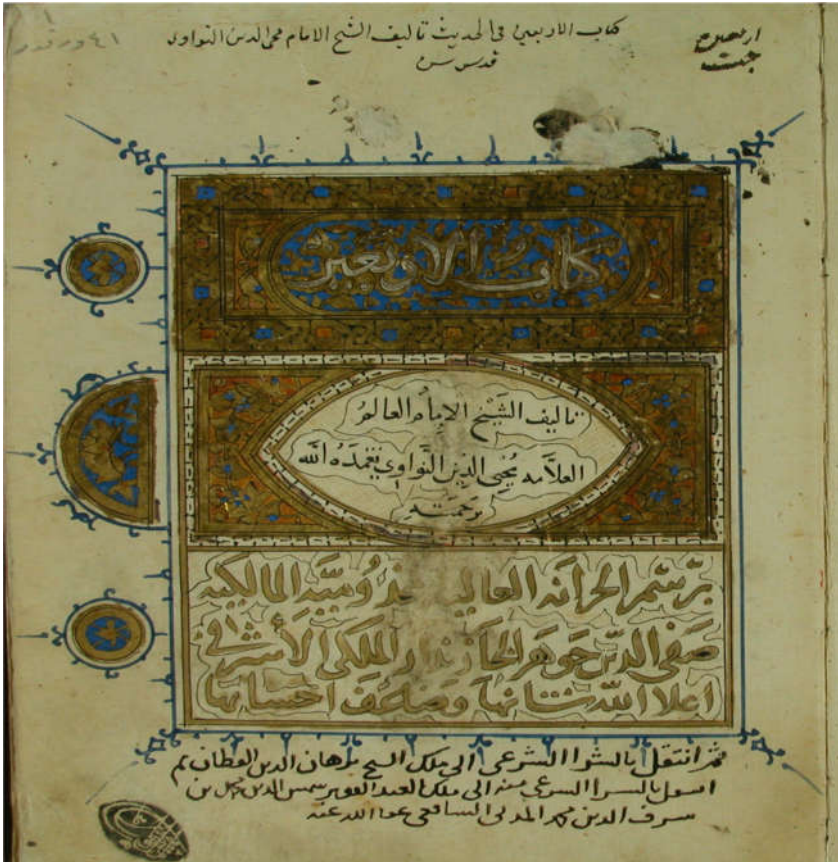 كتاب الاربعين في الحديث تاليف الشيخ الامام محي الدين النواوي
قدس سره
اربعين
حديث
٤١ ورقة
كتاب الاربعين
تاليف الشيخ الامام العالم
العلامه محيي الدين النواوي تغمده الله
برحمته
برسم الخزانه العاليه المخدوميه المالكيه
صفي الدين جوهر الخازندار الملكي الاشرفي
اعلا الله شانها وضاعف احسانها
ثم انتقل بالشرا الشرعي الى ملك الشيخ برهان الدين القطان ثم
انتقل بالشرا الشرعي منه الى ملك العبد الفقير شمس الدين محمد بن
شرف الدين محمد المدني الشافعي عفا الله عنه